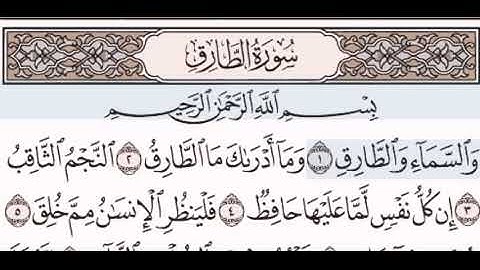 سُورَةُ الطَّارِقِ
بِسْمِ ٱللَّهِ ٱلرَّحْمَٰنِ ٱلرَّحِيمِ
وَٱلسَّمَآءِ وَٱلطَّارِقِ ١ وَمَآ أَدْرَىٰكَ مَا ٱلطَّارِقُ ٢ ٱلنَّجْمُ ٱلثَّاقِبُ
٣ إِن كُلُّ نَفْسٍ لَّمَّا عَلَيْهَا حَافِظٌ ٤ فَلْيَنظُرِ ٱلْإِنسَٰنُ مِمَّ خُلِقَ ٥